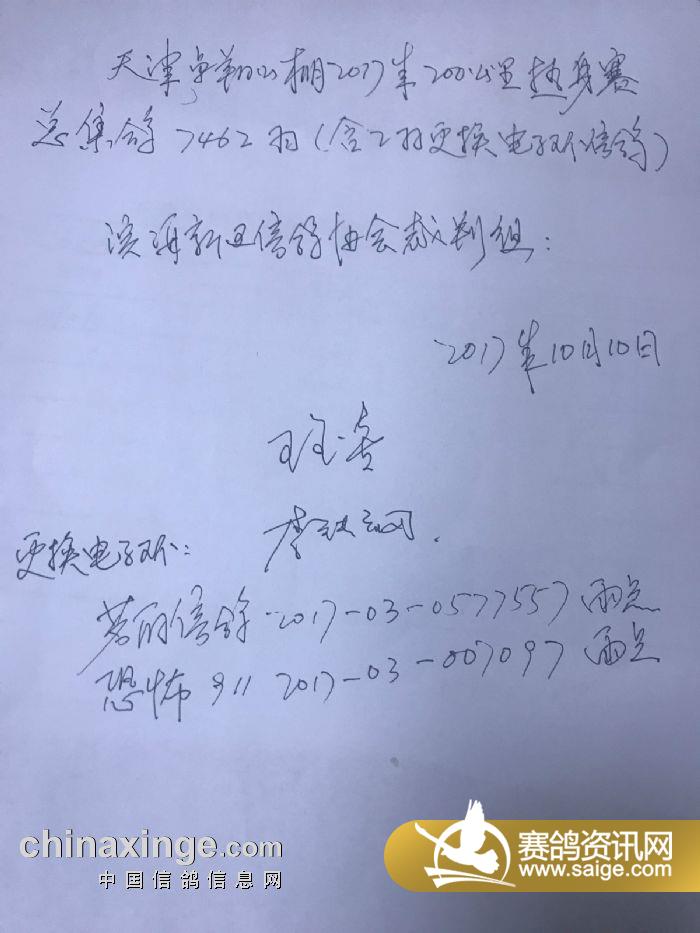 天津卓翔公棚2017年200公里热身赛
总集鸽7462羽(含2羽更换电子环信鸽)
滨海新区信鸽协会裁判组:
2017年10月10日
更换电子环:
茗丽信鸽 2017-03-0577557 雨点
恐怖911 2017-03-007097 雨点
chinaxinge.com
中国信鸽信息网
赛鸽资讯网
www.saige.com